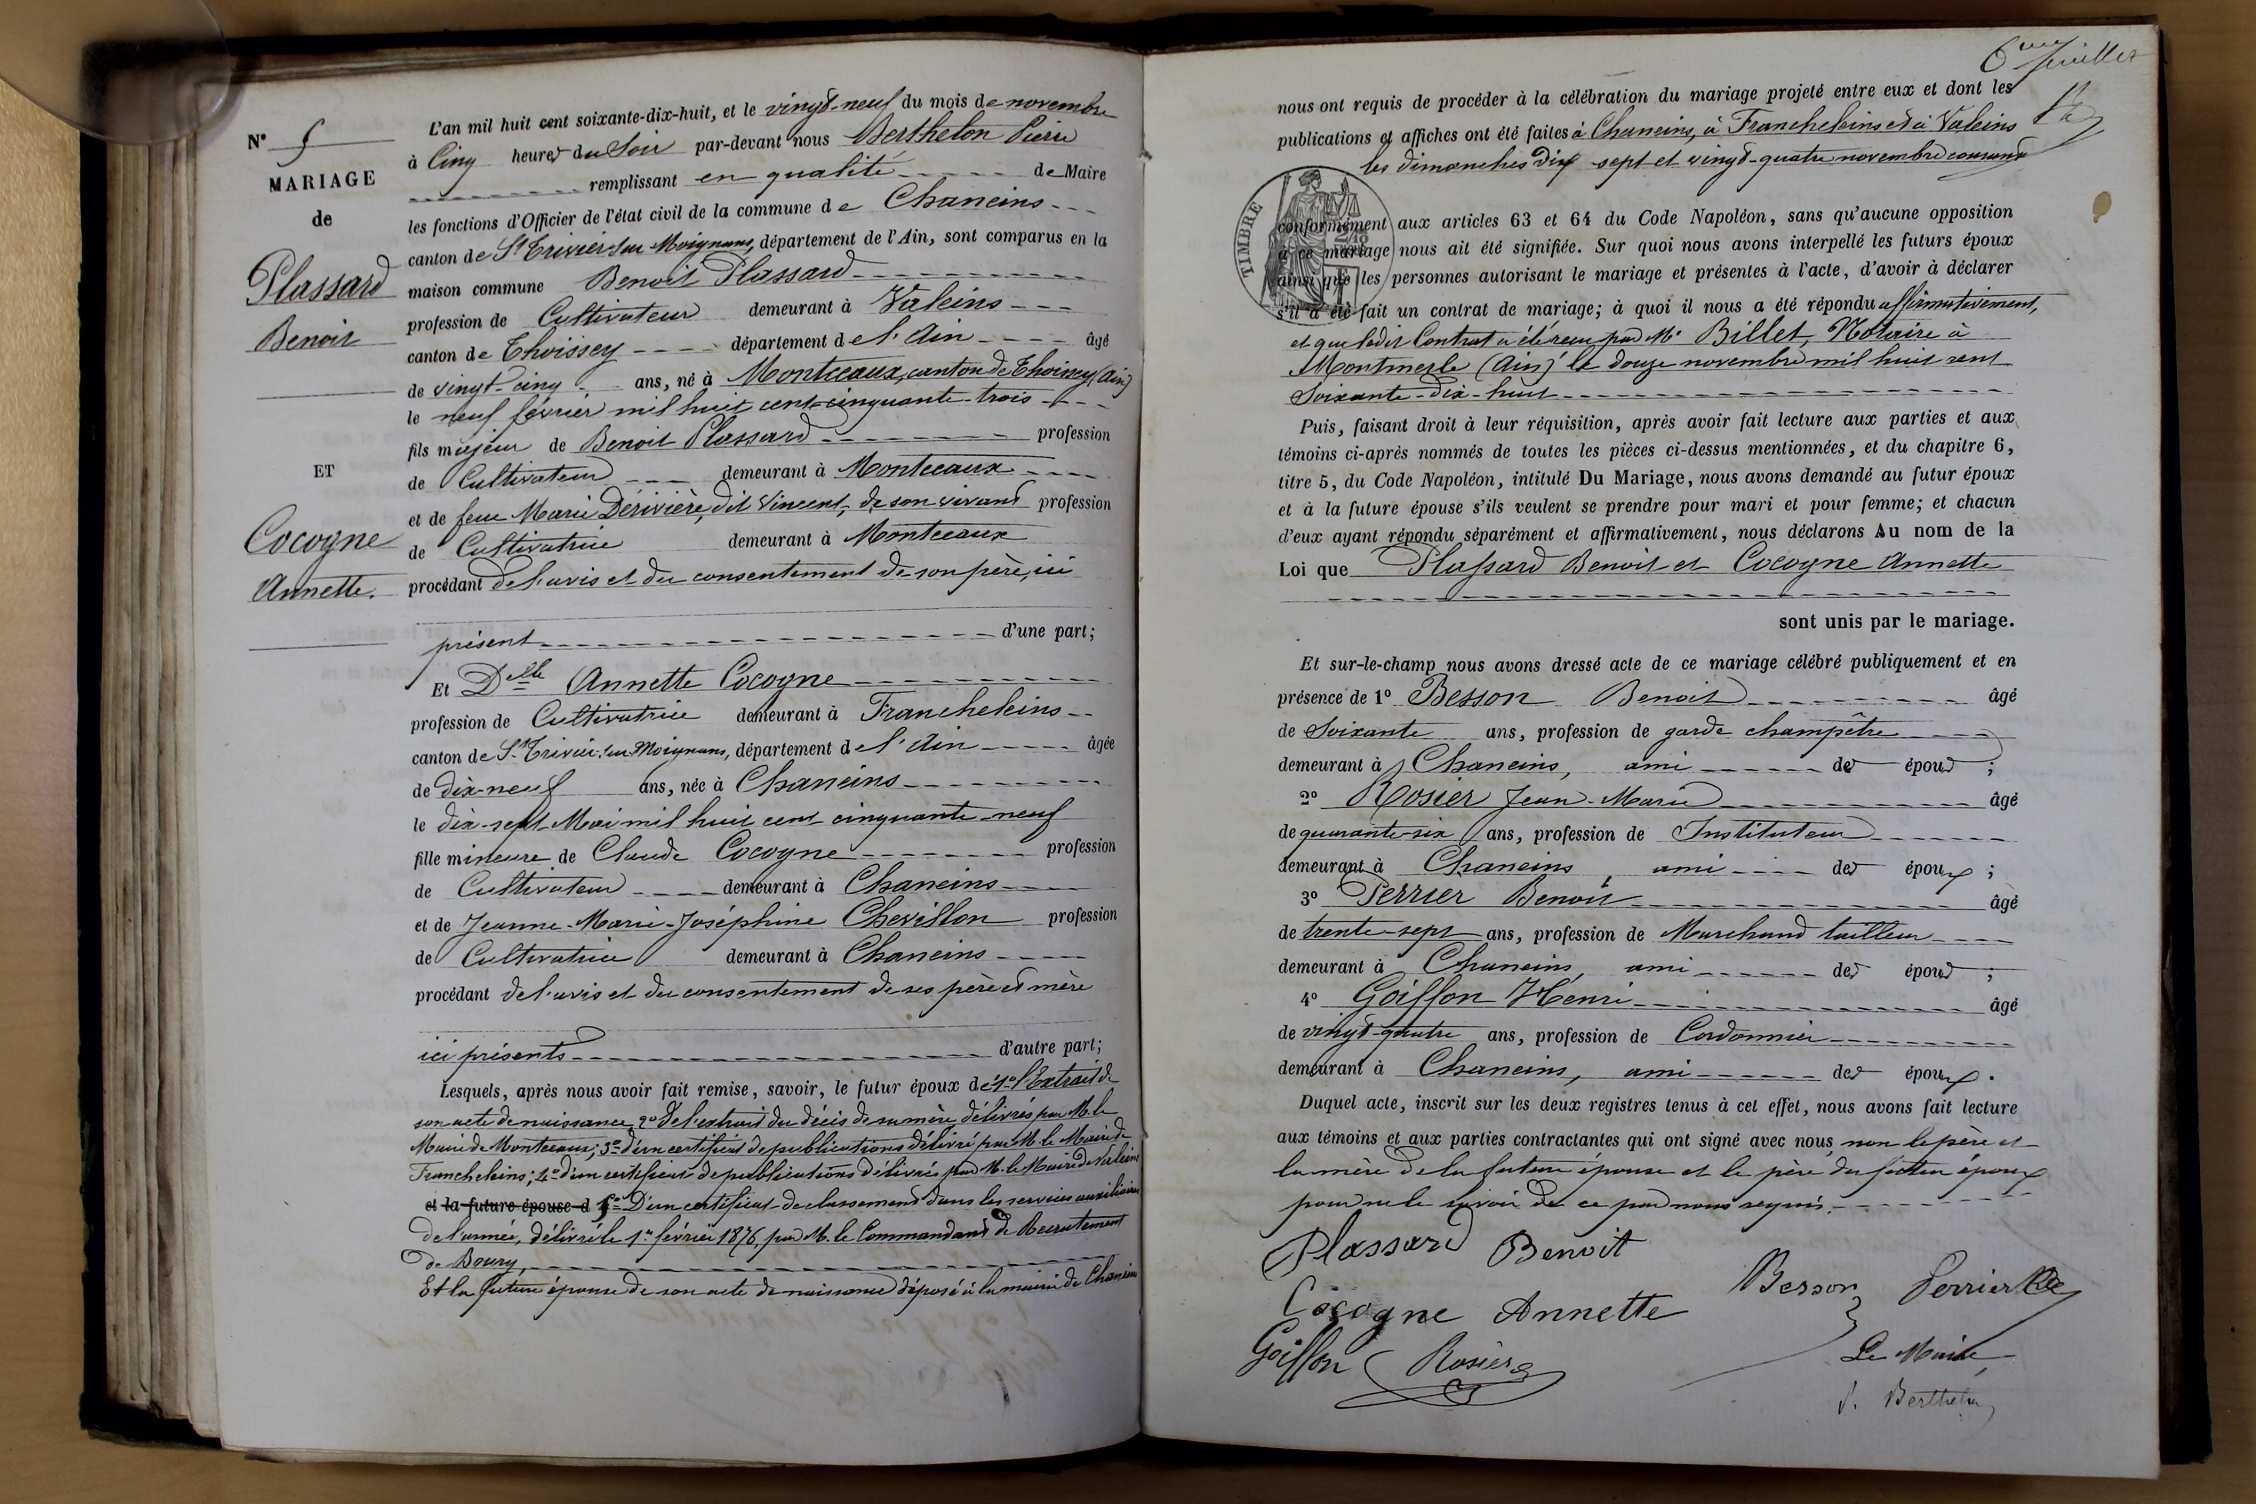 N° 5
MARIAGE
de
Plassard
Benoit
ET
Cocogne
Annette.
L'an mil huit cent soixante-dix-huit, et le vingt-neuf du mois de novembre
à Cinq heures du Soir par-devant nous Berthelon Pierre
remplissant en qualité de Maire
les fonctions d'Officier de l'état civil de la commune de Chaneins
canton de St Trivier-sur-Moignans, département de l'Ain, sont comparus en la
maison commune Benoit Plassard
profession de Cultivateur demeurant à Valeins
canton de Thoissey département de l'Ain âgé
de vingt-cinq ans, né à Montceaux, canton de Thoissey (Ain)
le neuf février mil huit cent cinquante-trois
fils majeur de Benoit Plassard profession
de Cultivateur demeurant à Montceaux
et de feue Marie Dérivière, dit Vincent, de son vivant profession
de Cultivatrice demeurant à Montceaux
procédant de l'avis et du consentement de son père, ici
présent d'une part;
Et Delle Annette Cocogne
profession de Cultivatrice demeurant à Francheleins
canton de St Trivier-sur-Moignans, département de l'Ain âgée
de dix-neuf ans, née à Chaneins
le dix-sept Mai mil huit cent cinquante-neuf
fille mineure de Claude Cocogne profession
de Cultivateur demeurant à Chaneins
et de Jeanne-Marie-Joséphine Chevillon profession
de Cultivatrice demeurant à Chaneins
procédant de l'avis et du consentement de ses père et mère
ici présents d'autre part;
Lesquels, après nous avoir fait remise, savoir, le futur époux de 1° l'Extrait de
son acte de naissance, 2° de l'extrait du décès de sa mère délivrés par M. le
Maire de Montceaux; 3° d'un certificat de publications délivré par M. le Maire de
Francheleins; 4° d'un certificat de publications délivrés par M. le Maire de Valeins
et la future épouse d 5° D'un certificat de classement dans les services auxiliaires
de l'armée, délivré le 1er février 1876, par M. le Commandant de Recrutement
de Bourg,
Et la future épouse de son acte de naissance déposé à la mairie de Chaneins
6me feuillet
nous ont requis de procéder à la célébration du mariage projeté entre eux et dont les
publications et affiches ont été faites à Chaneins, à Francheleins et à Valeins
les dimanches dix sept et vingt-quatre novembre courant
TIMBRE
conformément aux articles 63 et 64 du Code Napoléon, sans qu'aucune opposition
à ce mariage nous ait été signifiée. Sur quoi nous avons interpellé les futurs époux
ainsi que les personnes autorisant le mariage et présentes à l'acte, d'avoir à déclarer
s'il a été fait un contrat de mariage; à quoi il nous a été répondu affirmativement,
et que ledit Contrat a été reçu par Me Billet, Notaire à
Montmerle (Ain) le douze novembre mil huit cent
soixante-dix-huit
Puis, faisant droit à leur réquisition, après avoir fait lecture aux parties et aux
témoins ci-après nommés de toutes les pièces ci-dessus mentionnées, et du chapitre 6,
titre 5, du Code Napoléon, intitulé Du Mariage, nous avons demandé au futur époux
et à la future épouse s'ils veulent se prendre pour mari et pour femme; et chacun
d'eux ayant répondu séparément et affirmativement, nous déclarons Au nom de la
Loi que Plassard Benoit et Cocogne Annette
sont unis par le mariage.
Et sur-le-champ nous avons dressé acte de ce mariage célébré publiquement et en
présence de 1° Besson Benoit âgé
de Soixante ans, profession de garde champêtre
demeurant à Chaneins, ami des époux ;
2° Rosier Jean-Marie âgé
de quarante-six ans, profession de Instituteur
demeurant à Chaneins, ami des époux ;
3° Perrier Benoit âgé
de trente-sept ans, profession de Marchand tailleur
demeurant à Chaneins, ami des époux ;
4° Goiffon Henri âgé
de vingt-quatre ans, profession de Cordonnier
demeurant à Chaneins, ami des époux.
Duquel acte, inscrit sur les deux registres tenus à cet effet, nous avons fait lecture
aux témoins et aux parties contractantes qui ont signé avec nous, non le père et
la mère de la future épouse et le père du futur époux
pour ne le savoir de ce par nous requis.
Plassard Benoit
Besson Perrier
Cocogne Annette
Goiffon Rosier
Le Maire,
P. Berthelon